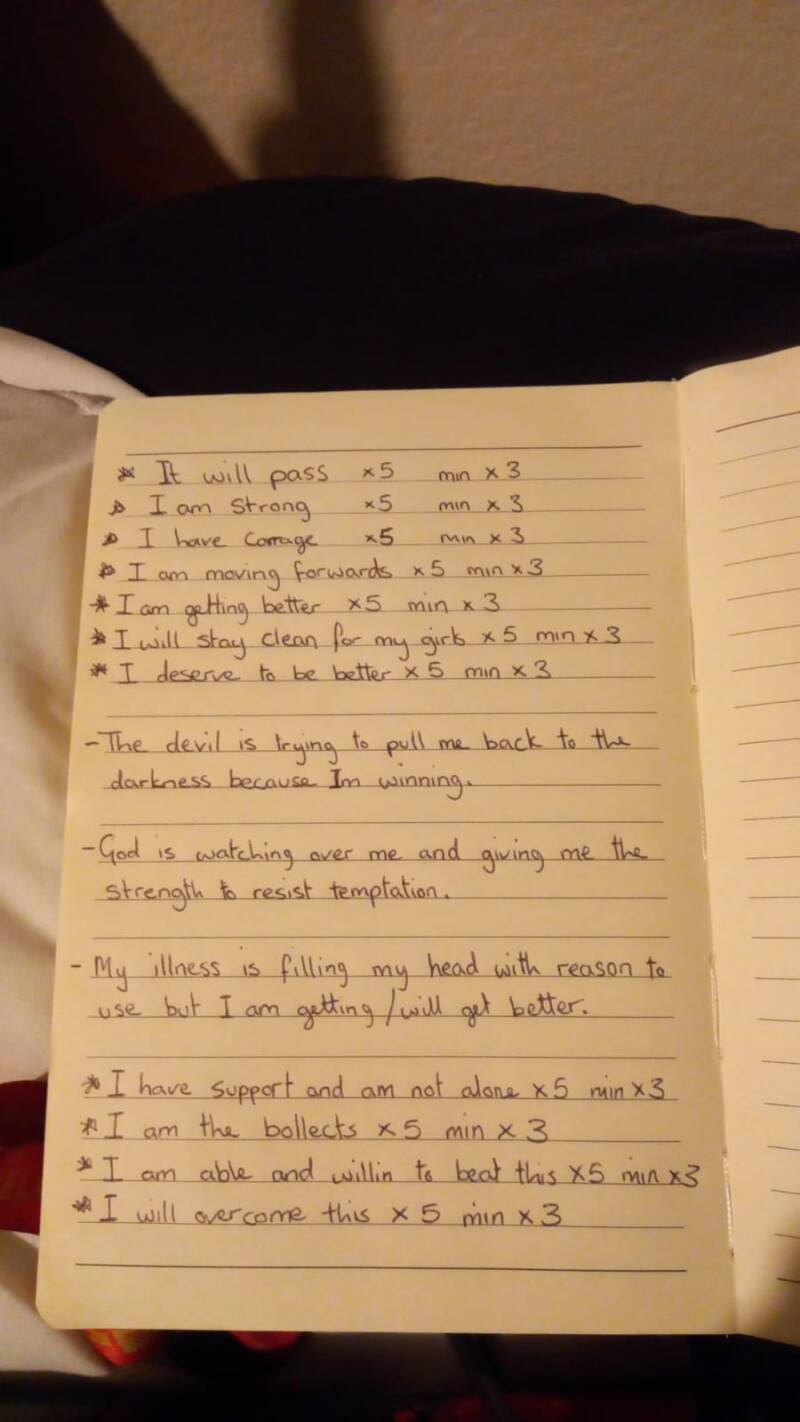 * It will pass x5 min x 3
* I am strong x5 min x 3
* I have Corrage x5 min x 3
* I am moving forwards x 5 min x 3
* I am getting better x5 min x 3
* I will stay clean for my girls x 5 min x 3
* I deserve to be better x 5 min x 3
- The devil is trying to pull me back to the
darkness because Im winning.
- God is watching over me and giving me the
strength to resist temptation.
- My illness is filling my head with reason to
use but I am getting / will get better.
* I have support and am not alone x 5 min x 3
* I am the bollects x 5 min x 3
* I am able and willin to beat this x5 min x3
* I will overcome this x 5 min x 3